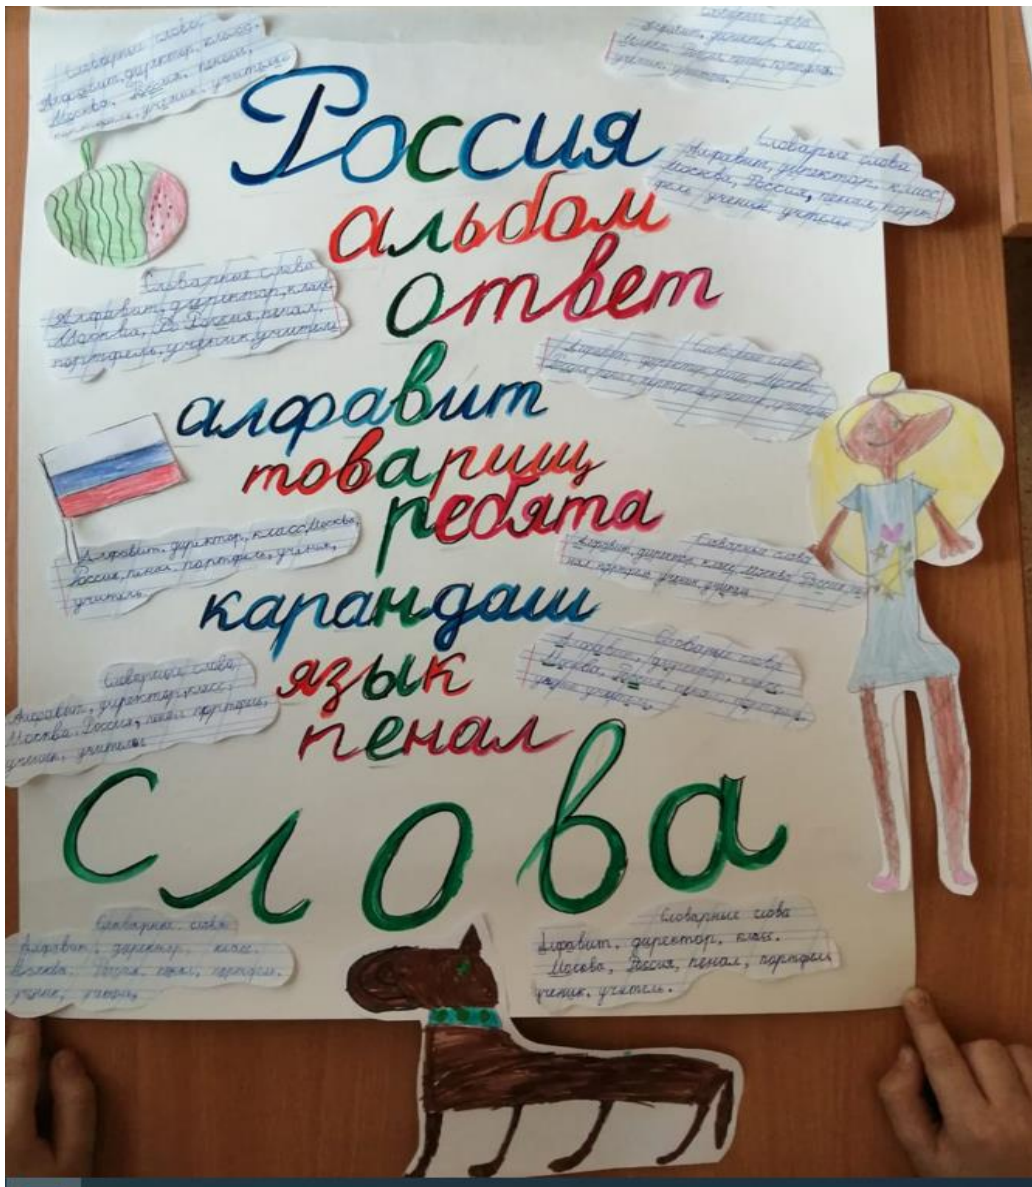 Словарные слова
Алфавит, директор, класс,
Москва, Россия, пенал,
портфель, ученик, учитель
Словарные слова
Алфавит, директор, класс,
Москва, Россия, пенал, портфель,
ученик, учитель.
Россия
Словарые слова
Алфавит, директор, класс,
Москва, Россия, пенал, порт-
фель ученик, учитель
альбом
ответ
Словарные слова
Алфавит, директор, класс,
Москва, Ро Россия, пенал,
портфель, ученик, учитель
Словарные слова
Алфавит, директор, класс, Москва,
Россия, пенал, портфель, ученик, учитель
алфавит
товарищ
ребята
Алфавит, директор, класс, Москва,
Россия, пенал, портфель, ученик,
учитель
Словарные слова
Алфавит, директор, класс, Москва, Россия, пе-
нал, портфель, ученик, учитель
карандаш
Словарные слова
Алфавит, директор, класс,
Москва, Россия, пенал, портфель,
ученик, учитель
язык
Словарные слова
Алфавит, директор, класс,
Москва, Россия, пенал, портфель,
ученик, учитель
пенал
Слова
Словарные слова
Алфавит, директор, класс.
Москва. Россия, пенал, портфель.
ученик, учитель.
Словарные слова
Алфавит, директор, класс.
Москва, Россия, пенал, портфель
ученик, учитель.